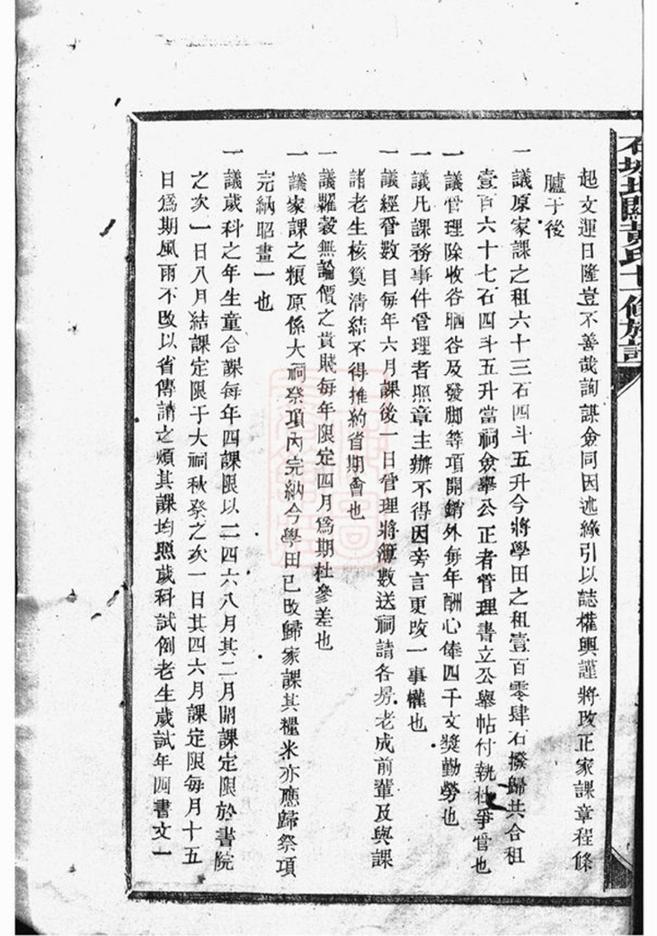 石城北關黃氏十一修族譜
起文運日隆豈不善哉詢謀僉同因述緣引以誌權輿謹將改正家課章程條
臚于後
一議原家課之租六十三石四斗五升今將學田之租壹百零肆石撥歸共合租
壹百六十七石四斗五升當祠僉舉公正者管理書立公舉帖付執杜爭管也
一議管理除收谷晒谷及發脚等項開銷外每年酬心俸四千文獎勤勞也
一議凡課務事件管理者照章主辦不得因旁言更改一事權也
一議經管數目每年六月課後一日管理將簿數送祠請各房老成前輩及與課
諸老生核算清結不得推約省期會也
一議糶穀無論價之貴賤每年限定四月爲期杜參差也
一議家課之粮原係大祠祭項內完納今學田已改歸家課其糧米亦應歸祭項
完納昭畫一也
一議歲科之年生童合課每年四課限以二四六八月其二月開課定限於書院
之次一日八月結課定限于大祠秋祭之次一日其四六月課定限每月十五
日爲期風雨不改以省傳請之煩其課均照歲科試例老生歲試年四書文一